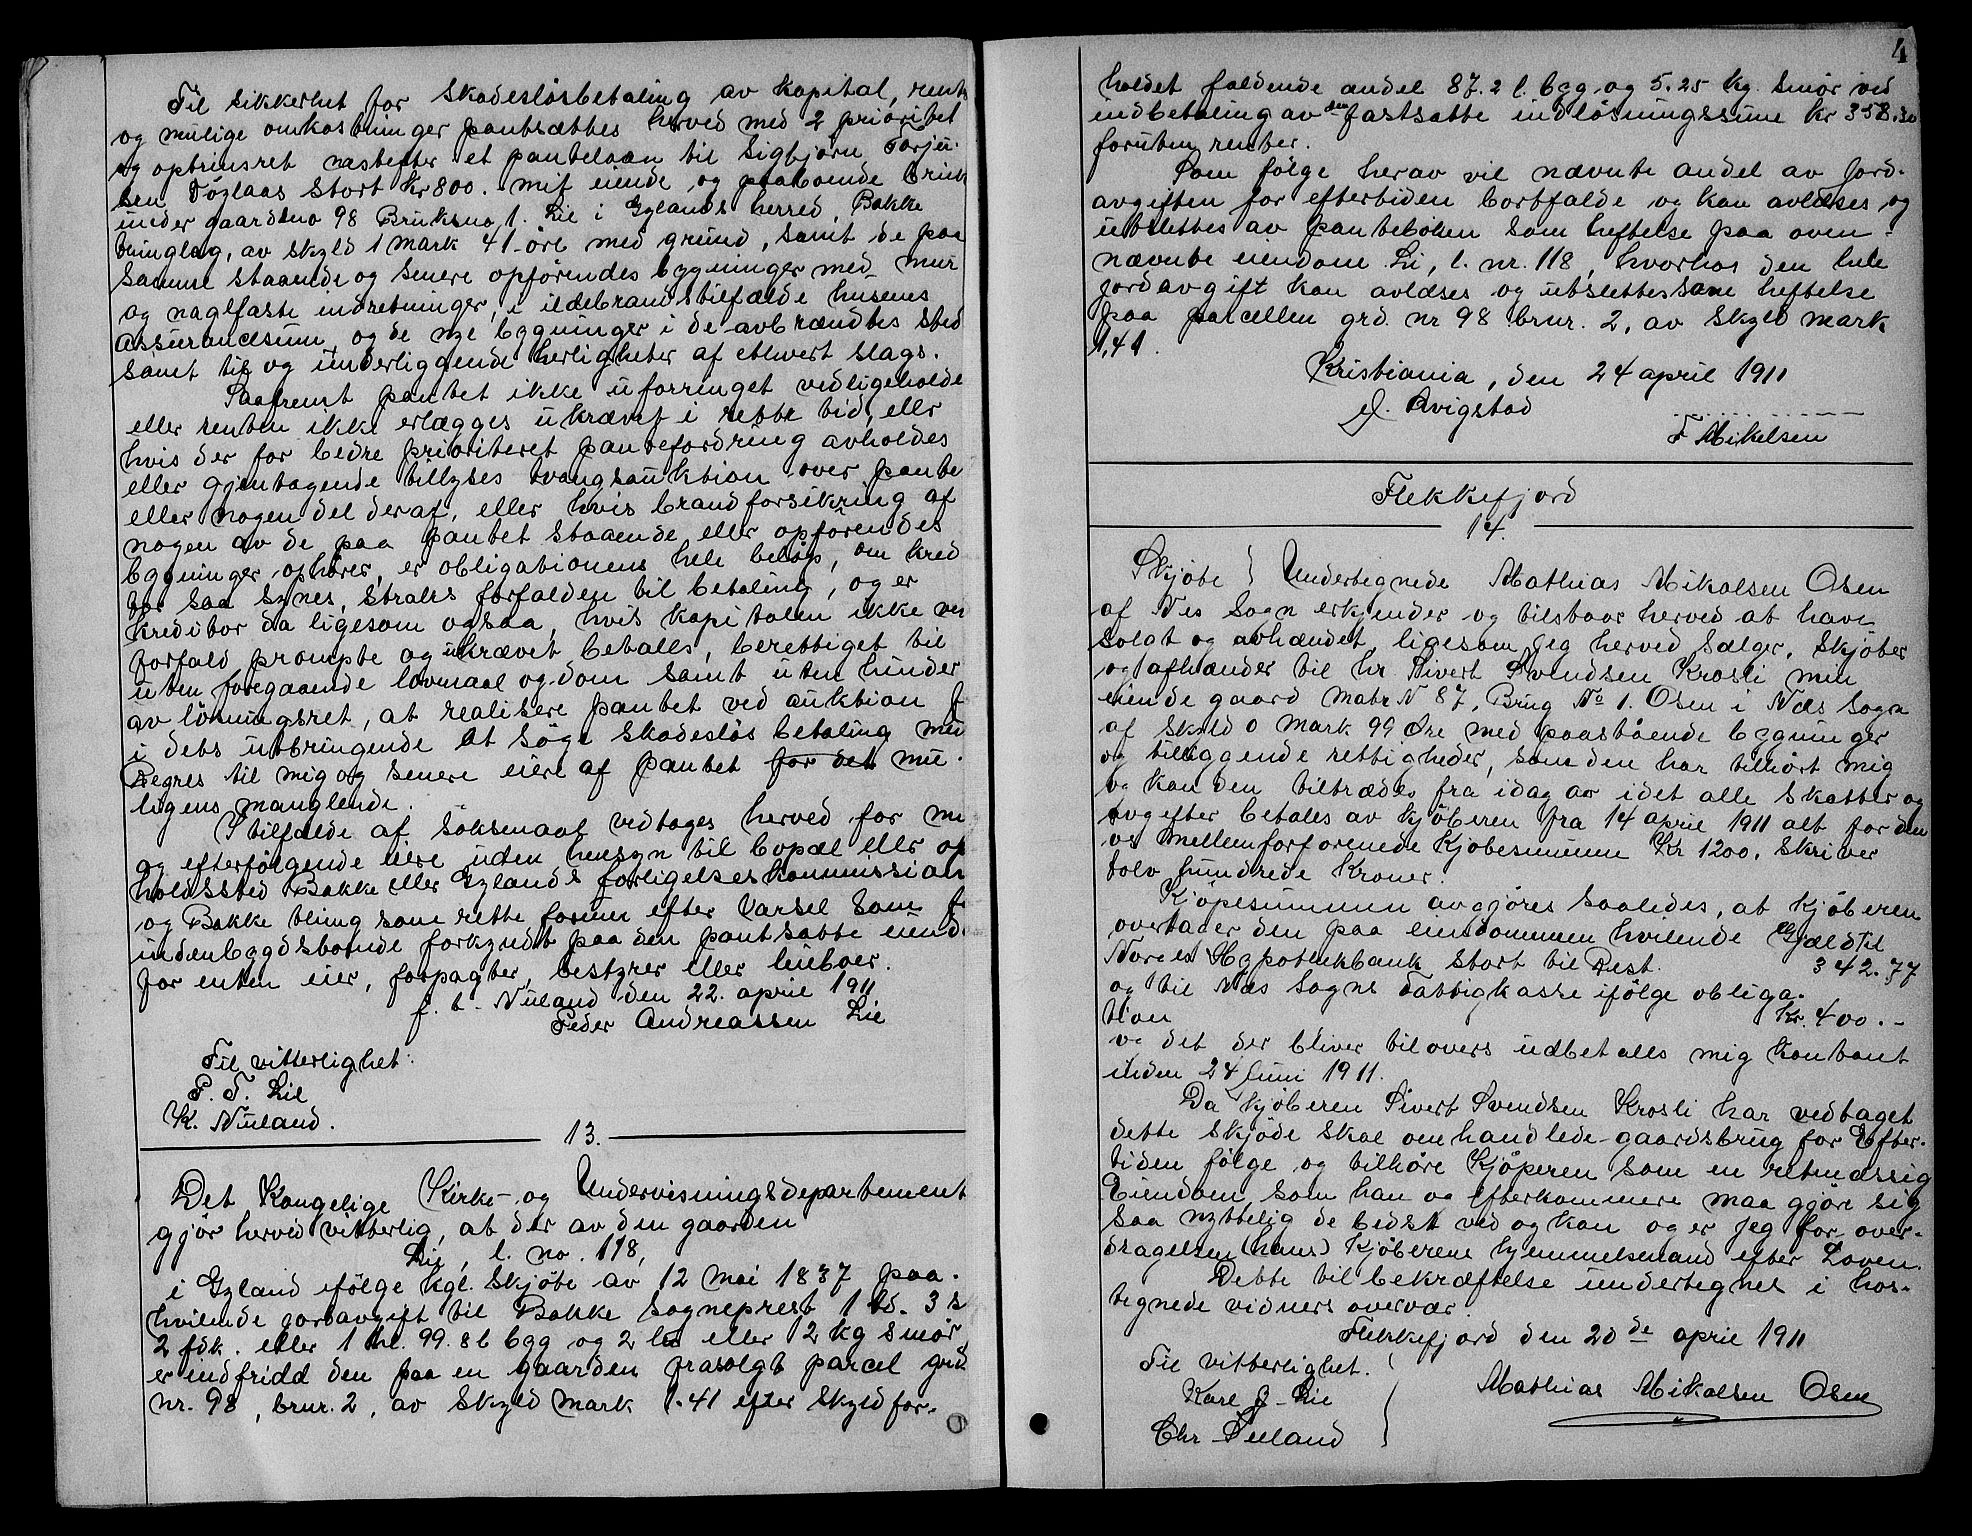 Til sikkerhet for skadesløsbetaling av kapital, rente
og mulige omkostninger pantsættes herved med 2 prioritet
og optrinsret næstefter et pantelaan til Sigbjørn Torju-
sen Töglaas stort Kr 800. mit eiende og paaboende bruk
under gaardsno 98 Bruksno 1. Lie i Gylands herred, Bakke
thinglag, av skyld 1 mark 41 öre med grund, samt de paa
samme staaende og senere opförendes bygninger med mur
og naglfaste indretninger, i ildebrandstilfælde husenes
assurancesum og de nye bygninger i de avbrændtes sted
samt til og underliggende herligheter af ethvert slags.
Saafremt pantet ikke uforringet vedligeholde
eller renten ikke erlægges ukrævet i rette tid, eller
hvis der for bedre prioriteret pantefordring avholdes
eller gjentagende tillyses tvangsauktion over pante
eller nogen del deraf, eller hvis brandforsikring af
nogen av de paa pantet staaende eller opförendes
bygninger ophører, er obligationens hele belöp, om kred
tor saa synes, straks forfalden til betaling, og er
kreditor da ligesom ogsaa, hvis kapitalen ikke ved
forfald prompte og ukrævet betalls, berettiget til
uten foregaaende lovmaal og dom samt uten hinder
av lösningsret, at realisere pantet ved auktion f
i dets utbringende at söge skadeslös betaling med
Regres til mig og senere eiere af pantet for det mu-
ligens manglende.
I tilfælde af söksmaal vedtages herved for mi
og efterfölgende eiere uden hensyn til bopæl eller op
holdssted Bakke eller Gylands forligelseskommission
og Bakke thing som rette forum efter varsel som f
indenbygdsboende forkyndt paa den pantsatte eiend.
for enten eier, forpagter, bestyrer eller leieboer.
f. t. Nuland den 22. april 1911
Peder Andreassen Lie
Til vitterlighet:
P. T. Lie
K. Nuland.
13.
Det Kongelige Kirke- og Undervisningsdepartement
gjör herved vitterlig, at der av den gaarden
Lie, l. no. 118,
i Gyland ifölge kgl. skjöte av 12 mai 1837 paa-
hvilende jordavgift til Bakke Sogneprest 1 td. 3 s
2 fdk. eller 1 hl. 99.8 l byg og 2 eller 12 kg smör
er indfridd den paa en gaarden frasolgt parcel grd
nr. 98, brnr. 2, av skyld mark 1.41 efter skyldfor-
4
holdet faldende andel 87.2 l. byg og 5.25 kg. smör ved
indbetaling av den fastsatte indlösningssum kr 358.30
foruten renter.
Som fölge herav vil nævnte andel av jord-
avgiften for eftertiden bortfalde og kan avlæses og
utslettes av panteboken som heftelse paa oven-
nævnte eiendom Li, l. nr. 118, hvorhos den hele
jordavgift kan avlæses og utslettes som heftelse
paa parcellen grd. nr 98 brnr. 2, av skyld mark
1,41.
Kristiania, den 24 april 1911
J. Qvigstad
F Mikelsen
Flekkefjord
14.
Skjöte } Undertegnede Mathias Mikalsen Osen
af Nes Sogn erkjender og tilstaar herved at have
solgt og avhændet ligesom jeg herved sælger, skjöter
og afhænder til hr Sivert Svendsen Krosli min
eiende gaard Matr N 87, Brug No 1. Osen i Næs Sogn
af skyld 0 Mark 99 Öre med paastående bygninger
og tilliggende rettigheder, som den har tilhört mig
og kan den tiltrædes fra idag av idet alle skatter og
avgifter betales av kjöberen fra 14 april 1911 alt for den
os mellem forforenede Kjöbesummen Kr 1200, skriver
tolv hundrede Kroner.
Kjöpesummen avgjöres saaledes, at kjöberen
overtager den paa eiendommen hvilende Gjæld til
Norges Hypothekbank stort til Rest. 342.77
og til Næs Sogns Fattigkasse ifölge obliga-
tion Kr. 400.-
og det der bliver tilovers udbetalls mig kontant
inden 24 Juni 1911.
Da kjöberen Sivert Svendsen Krosli har vedtaget
dette skjöde skal omhandlede gaardsbrug for Efter-
tiden fölge og tilhöre Kjöperen som en retmæssig
Eiendom som han og Efterkommere maa gjöre sig
saa nyttelig de bedst ved og kan og er jeg for over-
dragelsen (hans) kjöberens hjemmelsmand efter Loven.
Dette til bekræftelse undertegnet i hos-
tegnede vidners overvær.
Flekkefjord den 20de april 1911
Til vitterlighet.
Karl J. Lie
Chr
Mathias Mikalsen Osen